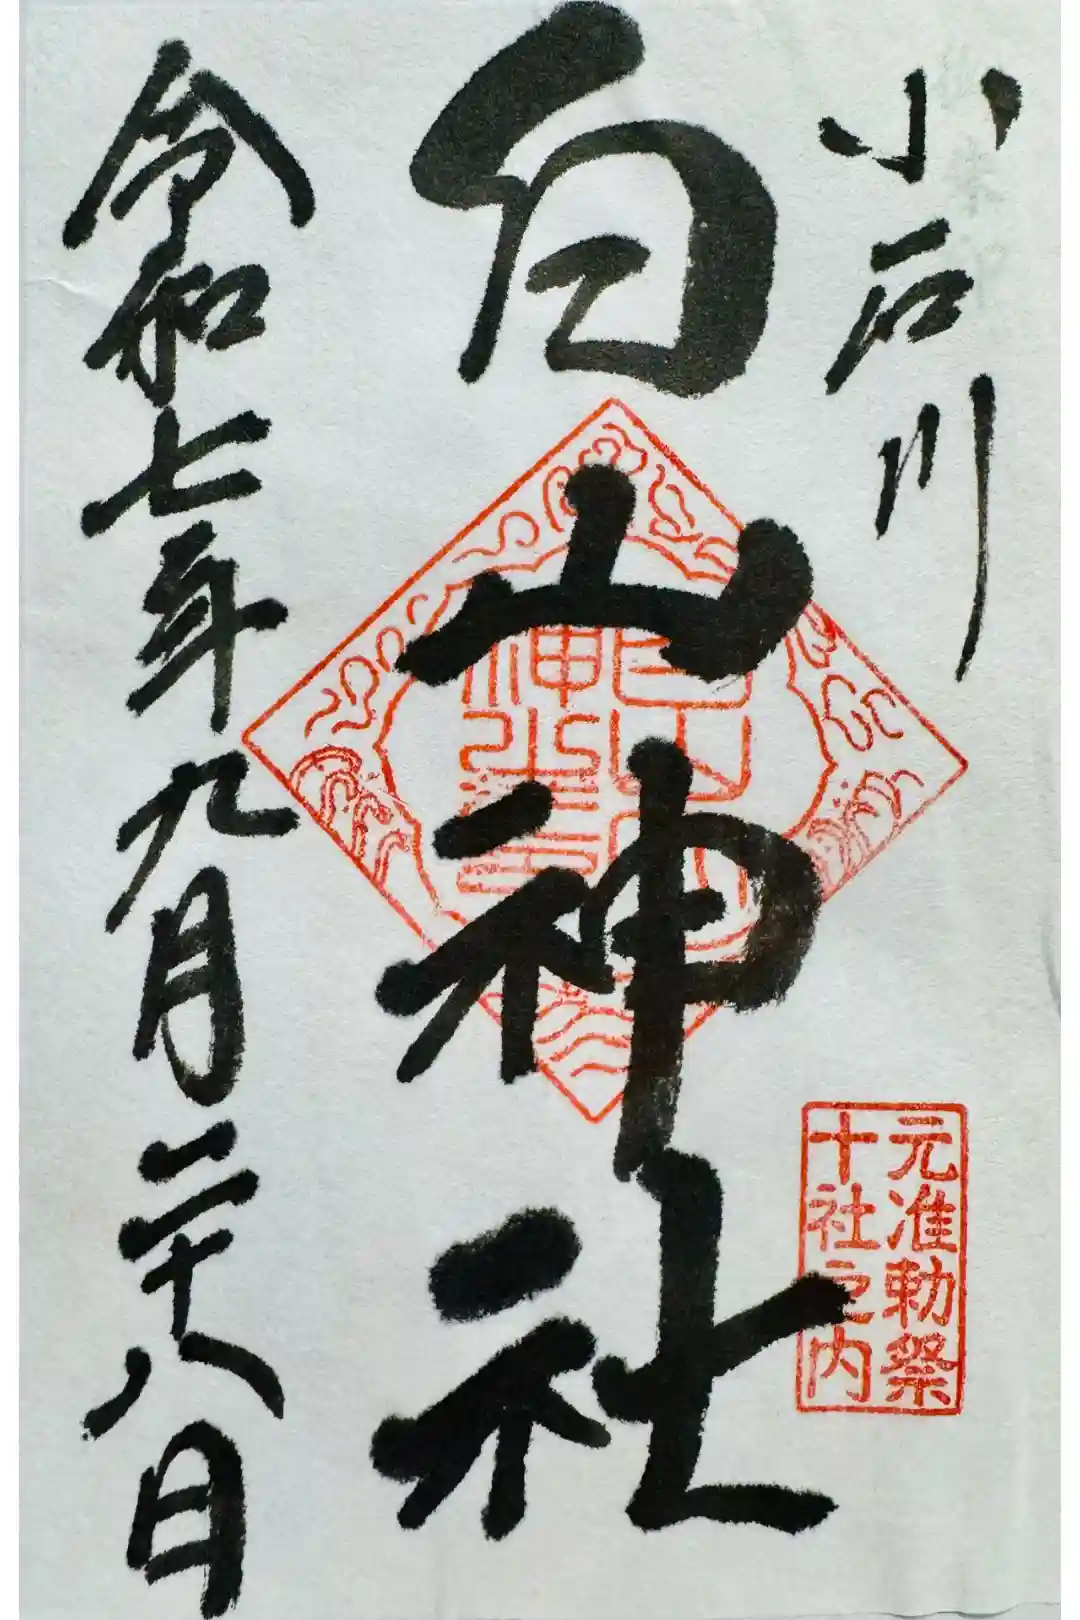 小石川
白山神社
元准勅祭
十社之内
令和七年九月二十八日